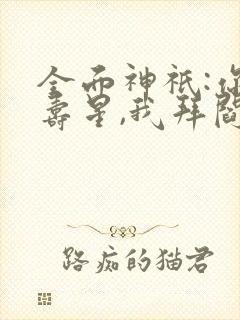 全而神祇:你
寿星,我拜阎
路痴的猫君